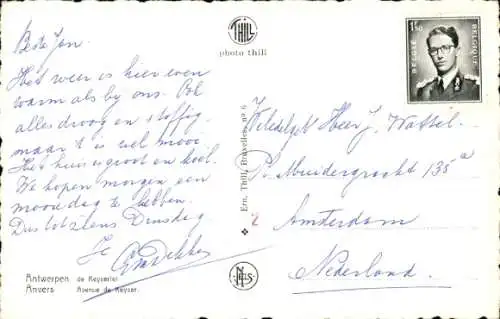 THILL
photo thill
BELGIË BELGIQUE
1,50
Beste Jan.
Het weer is hier even
warm als bij ons. Ook
alles droog en stoffig,
maar 't is wel mooi
Het huis is groot en koel.
We hopen morgen een
mooie dag te hebben.
Dus tot ziens Dinsdag
Je
Ern. Thill, Bruxelles, nº 6
Weledelgeb Heer J. Wattel.
Pl. Muidergracht 135 a
2
Amsterdam
Nederland.
Antwerpen de Keyserlei
Anvers Avenue de Keyser.